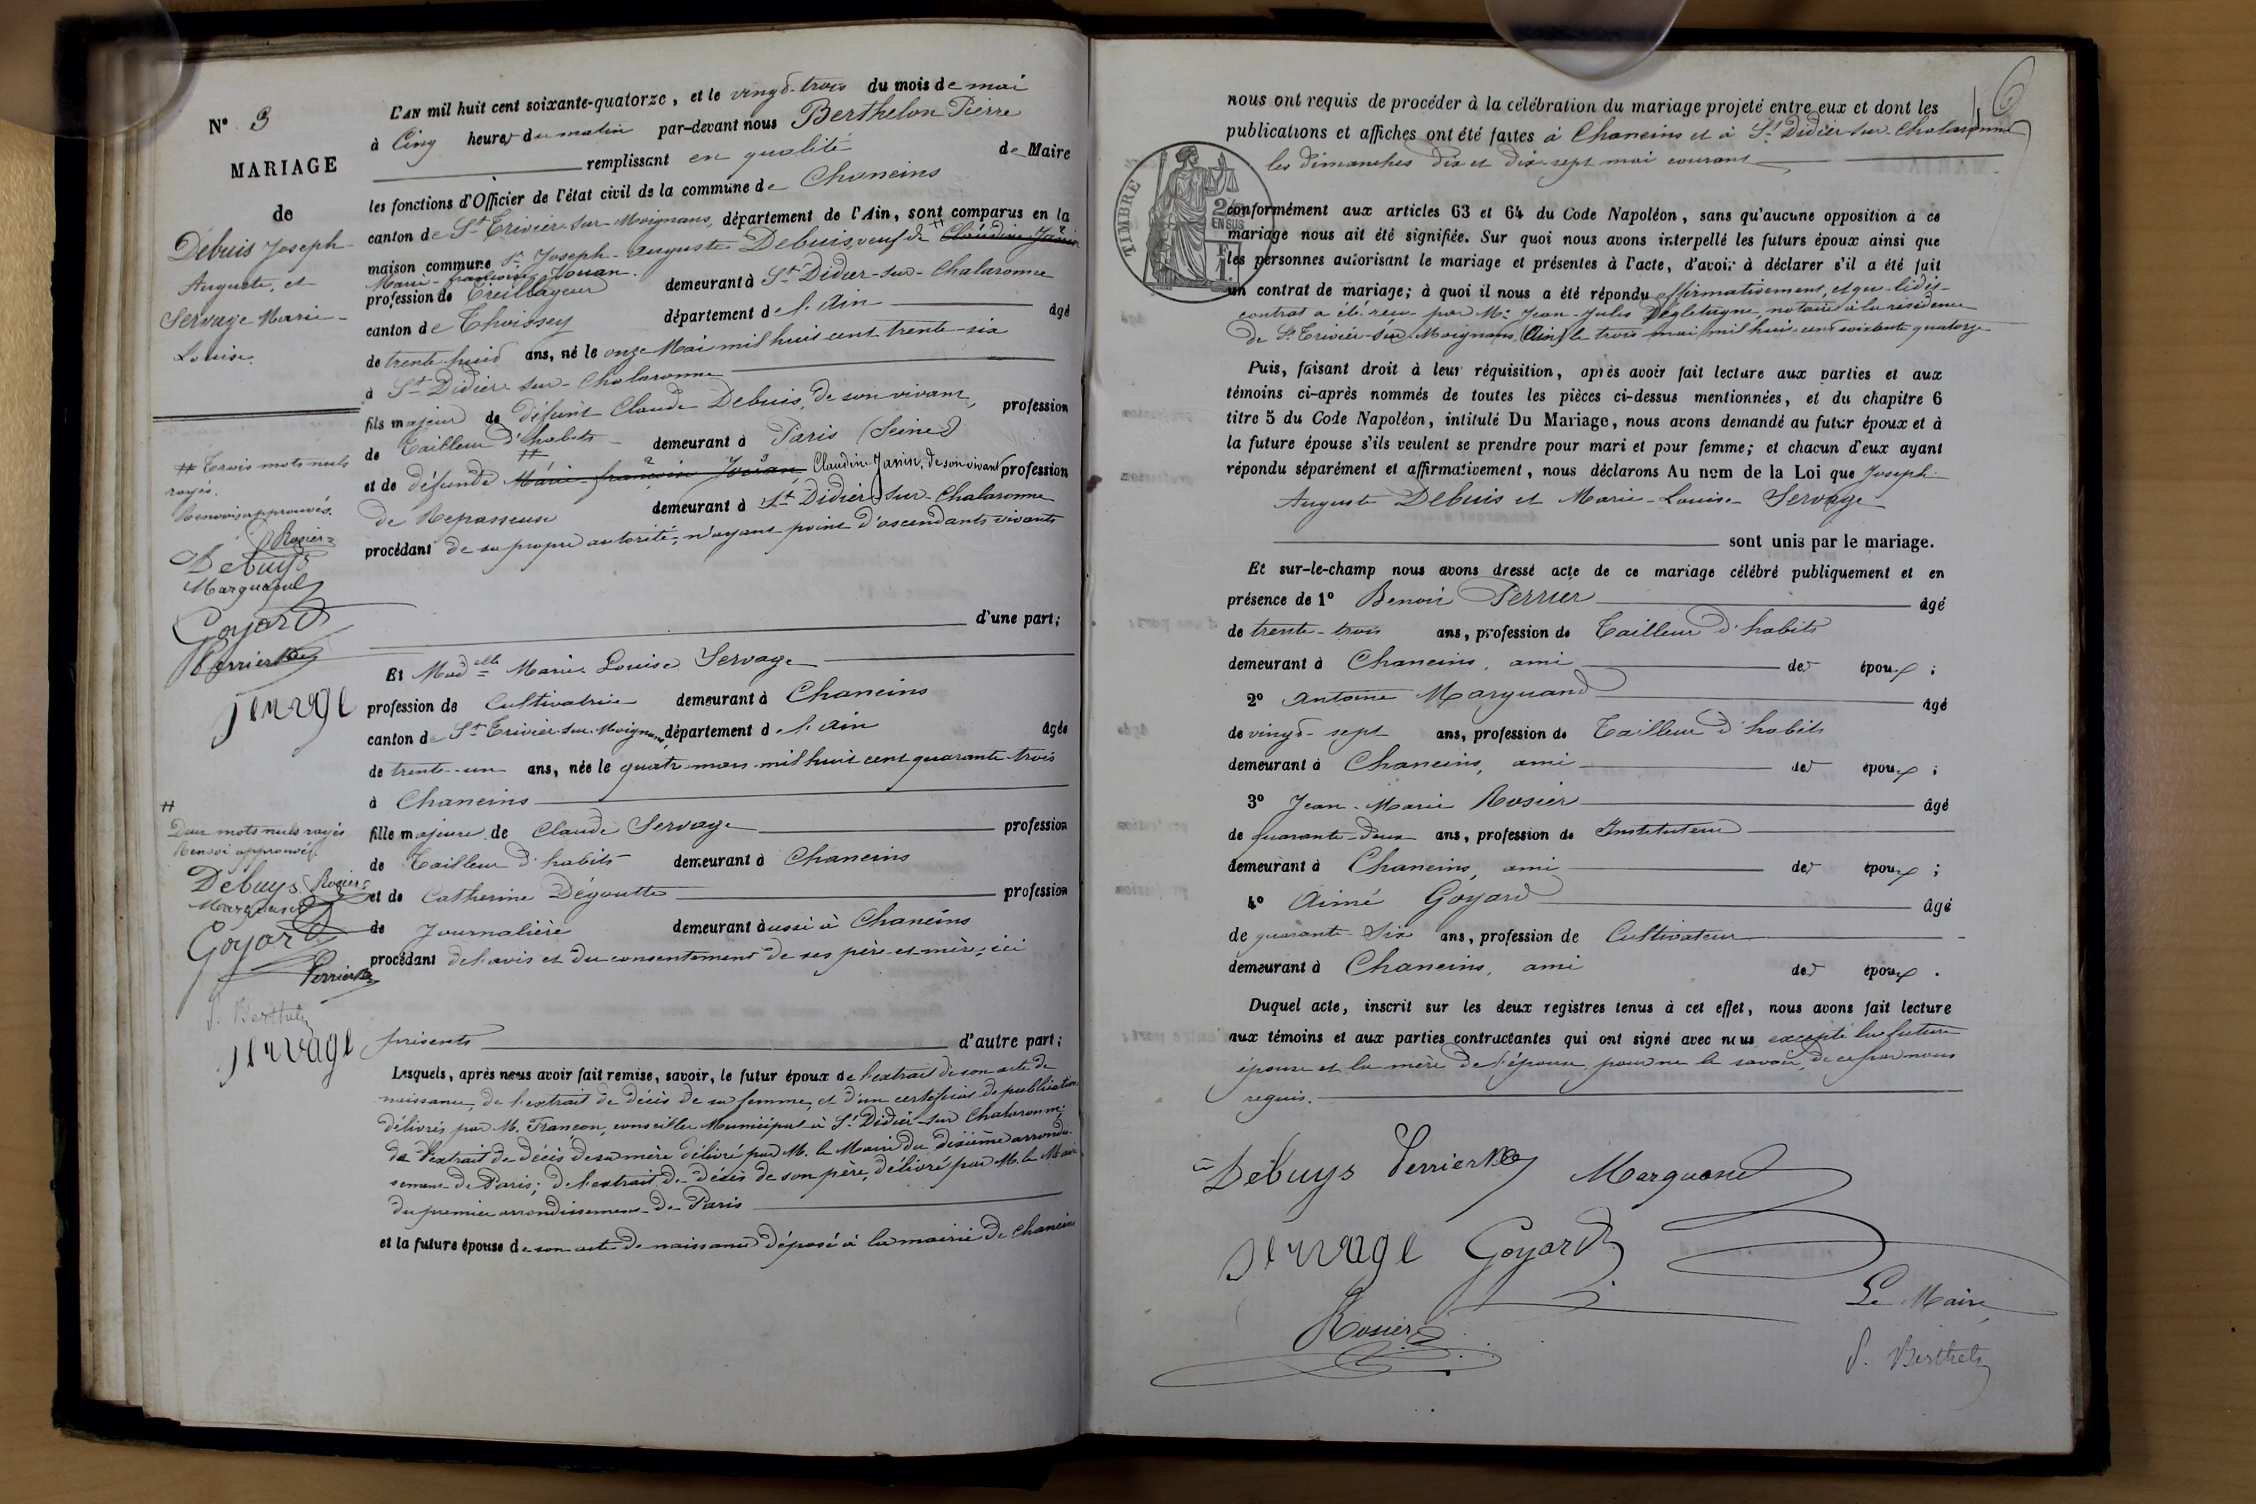 N° 3
MARIAGE
de
Debuis Joseph-
Auguste, et
Servage Marie-
Louise.
## Trois mots nuls
rayés.
Renvois approuvés.
Rosier
Debuys
Marguand
Goyard
Perrier
Servage
##
Deux mots nuls rayés
Renvoi approuvés.
Debuys Rosier
Marguand
Goyard
Perrier
P. Berthelon
Servage
L'AN mil huit cent soixante-quatorze, et le vingt-trois du mois de mai
à Cinq heures du matin par-devant nous Berthelon Pierre
remplissant en qualité de Maire
les fonctions d'Officier de l'état civil de la commune de Chaneins
canton de St Trivier-sur-Moignans, département de l'Ain, sont comparus en la
maison commune Sr Joseph-Auguste Debuis, veuf de Claudine Janin
Marie-françoise Jouan.
profession de Treillageur demeurant à St Didier-sur-Chalaronne
canton de Thoissey département de l'Ain âgé
de trente-huit ans, né le onze Mai mil huit cent trente-six
à St Didier-sur-Chalaronne
fils majeur de défunt Claude Debuis, de son vivant, profession
de Tailleur d'habits demeurant à Paris (Seine)
et de défunte Marie-françoise Jouan Claudine Janin, de son vivant profession
de Repasseuse demeurant à St Didier-sur-Chalaronne
procédant de sa propre autorité, n'ayant point d'ascendants vivants
d'une part;
Et Madelle Marie Louise Servage
profession de Cultivatrice demeurant à Chaneins
canton de St Trivier-sur-Moignans, département de l'Ain âgée
de trente-un ans, née le quatre mars mil huit cent quarante-trois
à Chaneins
fille majeure de Claude Servage profession
de Tailleur d'habits demeurant à Chaneins
et de Catherine Dégoutte profession
de Journalière demeurant aussi à Chaneins
procédant de l'avis et du consentement de ses père et mère, ici
présents d'autre part;
Lesquels, après nous avoir fait remise, savoir, le futur époux de l'extrait de son acte de
naissance, de l'extrait de décès de sa femme, et d'un certificat de publication
délivrés par M. Françon, conseiller Municipal à St Didier-sur-Chalaronne;
de l'extrait de décès de sa mère délivré par M. le Maire du dixième arrondis-
sement de Paris; de l'extrait de décès de son père, délivré par M. le Maire
du premier arrondissement de Paris
et la future épouse de son acte de naissance déposé à la mairie de Chaneins
6
TIMBRE
2/10
EN SUS
1 F.
nous ont requis de procéder à la célébration du mariage projeté entre eux et dont les
publications et affiches ont été faites à Chaneins et à St Didier-sur-Chalaronne
les dimanches dix et dix-sept mai courant
conformément aux articles 63 et 64 du Code Napoléon, sans qu'aucune opposition à ce
mariage nous ait été signifiée. Sur quoi nous avons interpellé les futurs époux ainsi que
les personnes autorisant le mariage et présentes à l'acte, d'avoir à déclarer s'il a été fait
un contrat de mariage; à quoi il nous a été répondu affirmativement, et que ledit
contrat a été reçu par Me Jean-Jules Dégletagne, notaire à la résidence
de St Trivier-sur-Moignans (Ain) le trois mai mil huit cent soixante quatorze
Puis, faisant droit à leur réquisition, après avoir fait lecture aux parties et aux
témoins ci-après nommés de toutes les pièces ci-dessus mentionnées, et du chapitre 6
titre 5 du Code Napoléon, intitulé Du Mariage, nous avons demandé au futur époux et à
la future épouse s'ils veulent se prendre pour mari et pour femme; et chacun d'eux ayant
répondu séparément et affirmativement, nous déclarons Au nom de la Loi que Joseph-
Auguste Debuis et Marie-Louise Servage
sont unis par le mariage.
Et sur-le-champ nous avons dressé acte de ce mariage célébré publiquement et en
présence de 1° Benoit Perrier âgé
de trente-trois ans, profession de Tailleur d'habits
demeurant à Chaneins, ami des époux;
2° Antoine Marguand âgé
de vingt-sept ans, profession de Tailleur d'habits
demeurant à Chaneins, ami des époux;
3° Jean-Marie Rosier âgé
de quarante-deux ans, profession de Instituteur
demeurant à Chaneins, ami des époux;
4° Aimé Goyard âgé
de quarante-six ans, profession de Cultivateur
demeurant à Chaneins, ami des époux.
Duquel acte, inscrit sur les deux registres tenus à cet effet, nous avons fait lecture
aux témoins et aux parties contractantes qui ont signé avec nous excepté la future
épouse et la mère de l'épouse pour ne le savoir, de ce par nous
requis.
Debuys Perrier Marguand
Servage Goyard
Rosier
Le Maire,
P. Berthelon